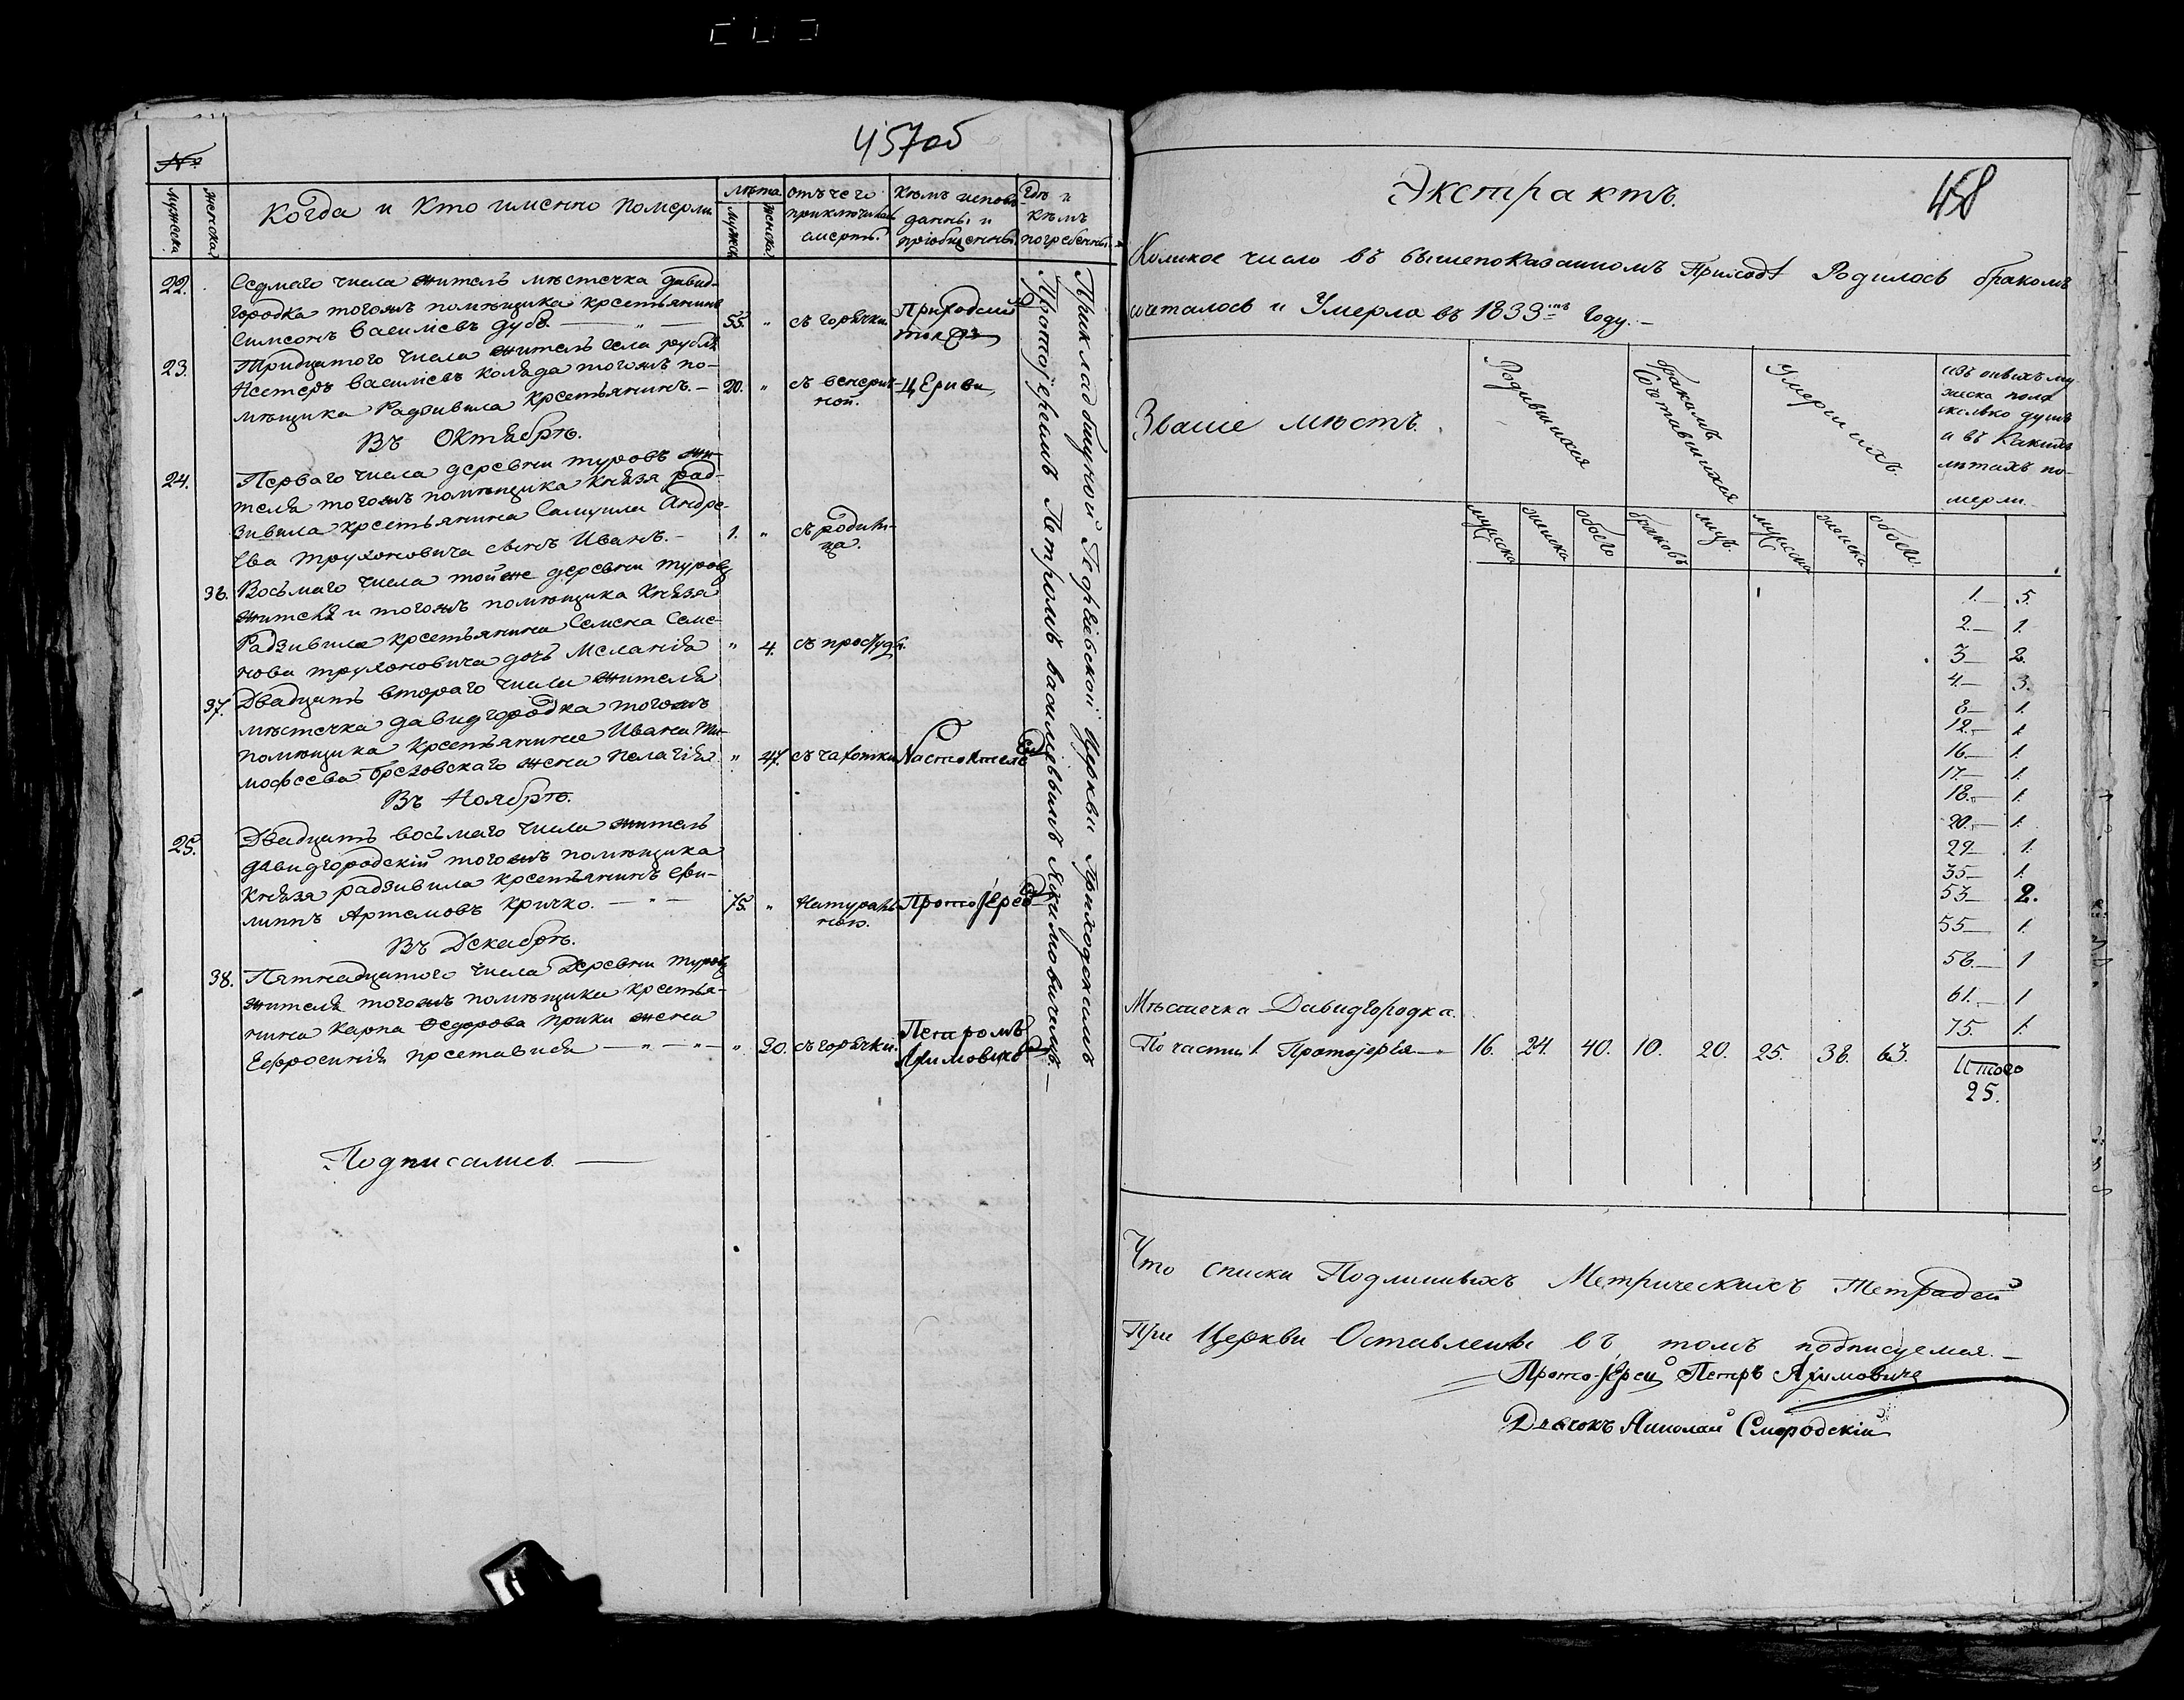 457об
№
мужеска
женска
Когда и Кто именно померли
лѣта
мужеска
женска
отъ чего приключилась смерть.
Кѣмъ исповѣданны и пріобщенны.
Гдѣ и Кѣмъ погребенны.
22. Седмаго числа житель мѣстечка давид-
городка тогожъ помѣщика крестьянинъ
Симеонъ Василіевъ дубъ. — " — 55. " съ горячки Приходскій
23. Тридцатого числа житель села рубля
Нестеръ Василіевъ коляда тогожъ по-
мѣщика Радзивила Крестьянинъ. — 20. " съ венерич-
ной. Церкви
Въ Октябрѣ.
24. Перваго числа деревни туровъ жи-
теля тогожъ помѣщика Князя рад-
зивила крестьянина Самуила Андре-
ева трухоновича сынъ Иванъ. — 1. " съ родим-
ца.
36. Восьмаго числа тойже деревни туровъ
жителя и тогожъ помѣщика Князя
Радзивила крестьянина Семена Семе-
нова трухоновича дочь Меланія " 4. съ простуды.
37. Двадцать втораго числа жителя
мѣстечка давидгородка тогожъ
помѣщика крестьянина Ивана Ти-
мофеева Бреховскаго жена Пелагія. " 47. съ чахотки Настоятель
Въ Ноябрѣ.
25. Двадцать восьмаго числа житель
давидгородскій тогожъ помѣщика
Князя радзивила крестьянинъ Фи-
липпъ Артемовъ кричко. — " — 75. " Натураль-
ною. Протоіерей
Въ Декабрѣ.
38. Пятнадцатого числа Деревни туровъ
жителя тогожъ помѣщика крестья-
нина Карпа Федорова прики жена
Ефросинія преставися — " — " — " 30. съ горячки. Петромъ
Якимовичъ
При кладбищной Георгіевской Церкви Приходскимъ
Протоіереемъ Петромъ Василіевымъ Якимовичемъ. —
Подписались. —
Экстрактъ.
458
Коликое число въ вышепоказанномъ Приходѣ Родилось бракомъ
сочеталось и Умерло въ 1833мъ Году. —
Званіе мѣстъ.
Родившихся
Бракомъ Сочетавшихся
Умершихъ.
изъ онихъ му-
жеска пола
сколько душъ
и въ Какихъ
лѣтахъ по-
мерли.
мужеска
женска
обоего
браковъ
лицъ.
мужеска
женска
обоего.
1. — 5.
2. — 1.
3 — 2.
4. — 3.
8 — 1.
12. — 1.
16 — 1.
17. — 1.
18. — 1.
20. — 1.
29 — 1.
35 — 1.
53 — 2.
55 — 1.
58. — 1
61. — 1
75. — 1.
Мѣстечка Давидгородка.
По части 1. Протоіерея — 16. 24. 40. 10. 20. 25. 38. 63.
Итого
25.
Что списки Подлинныхъ Метрическихъ Тетрадей
При Церкви Оставлены въ томъ подписуемся. —
Протоіерей Петръ Якимовичъ
Дьячокъ Николай Смородскій